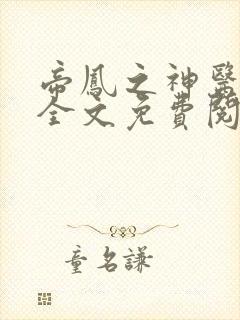 帝鳳之神醫
全文免費閱
童名謙